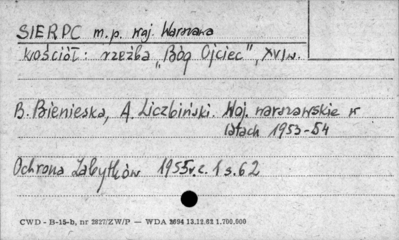 SIERPC m.p. woj. Warszawa
kościół: rzeźba "Bóg Ojciec", XVI w.
B. Bienieska, A. Liczbiński. Woj. warszawskie w
latach 1953-54
Ochrona Zabytków 1955 r. z. 1 s. 62
CWD - B-15-b, nr 2827/ZW/P — WDA 2694 13.12.62 1.700.000